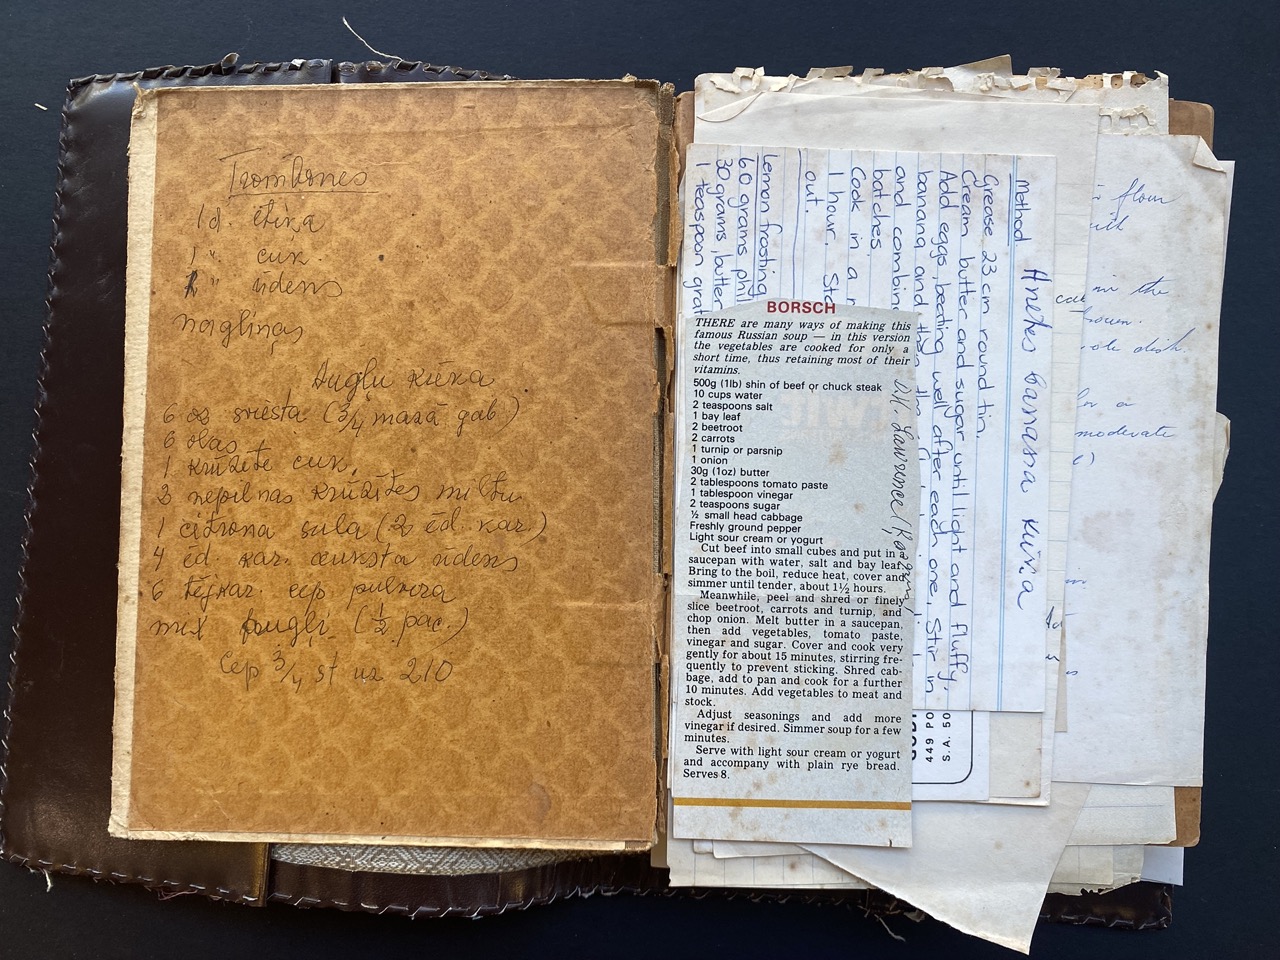 Trombōnes
1 d. etiķa
1 " cuk.
2 " ūdens
nagliņas
Augļu kūka
6 oz sviesta (3/4 mazā gab.)
6 olas
1 krūzīte cuk.
3 nepilnas krūzītes miltu
1 citrona sula (2 ēd. kar.)
4 ēd. kar. auksta ūdens
6 tējkar. cep pulvera
mix augļi (1/2 pac.)
Cep 3/4 st uz 210
BORSCH
THERE are many ways of making this
famous Russian soup — in this version
the vegetables are cooked for only a
short time, thus retaining most of their
vitamins.
500g (1lb) shin of beef or chuck steak
10 cups water
2 teaspoons salt
1 bay leaf
2 beetroot
2 carrots
1 turnip or parsnip
1 onion
30g (1oz) butter
2 tablespoons tomato paste
1 tablespoon vinegar
2 teaspoons sugar
½ small head cabbage
Freshly ground pepper
Light sour cream or yogurt
Cut beef into small cubes and put in a
saucepan with water, salt and bay leaf.
Bring to the boil, reduce heat, cover and
simmer until tender, about 1½ hours.
Meanwhile, peel and shred or finely
slice beetroot, carrots and turnip, and
chop onion. Melt butter in a saucepan,
then add vegetables, tomato paste,
vinegar and sugar. Cover and cook very
gently for about 15 minutes, stirring fre-
quently to prevent sticking. Shred cab-
bage, add to pan and cook for a further
10 minutes. Add vegetables to meat and
stock.
Adjust seasonings and add more
vinegar if desired. Simmer soup for a few
minutes.
Serve with light sour cream or yogurt
and accompany with plain rye bread.
Serves 8.
Lawrence
Anetes banana kūka
Method
Grease 23cm round tin.
Cream butter and sugar until light and fluffy.
Add eggs, beating well after each one. Stir in
banana and then the
and combin
batches.
Cook in a
1 hour.
out.
Lemon frosting
60 grams phil
30 grams butter
1 teaspoon grat
449 PO
S.A. 50
flour
in the
dish.
a
moderate